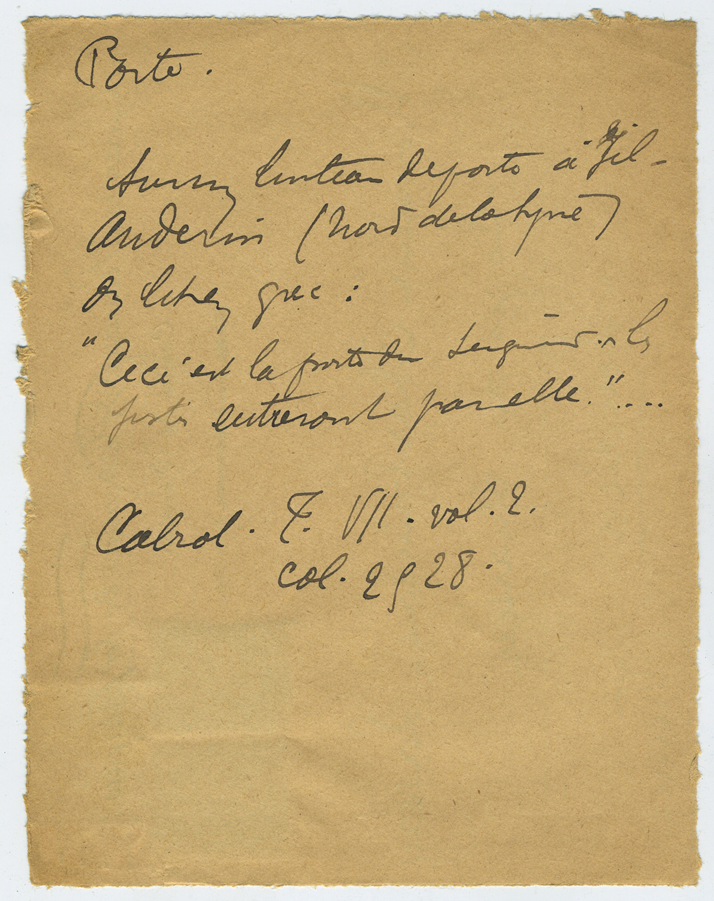 Porte.
Sur un linteau de porte à Jil-
Anderin (Nord de la Syrie)
en lettres grec :
"Ceci est la porte du Seigneur, les
justes entreront par elle."....
Cabrol. T. VII. vol. 2.
col. 2928.